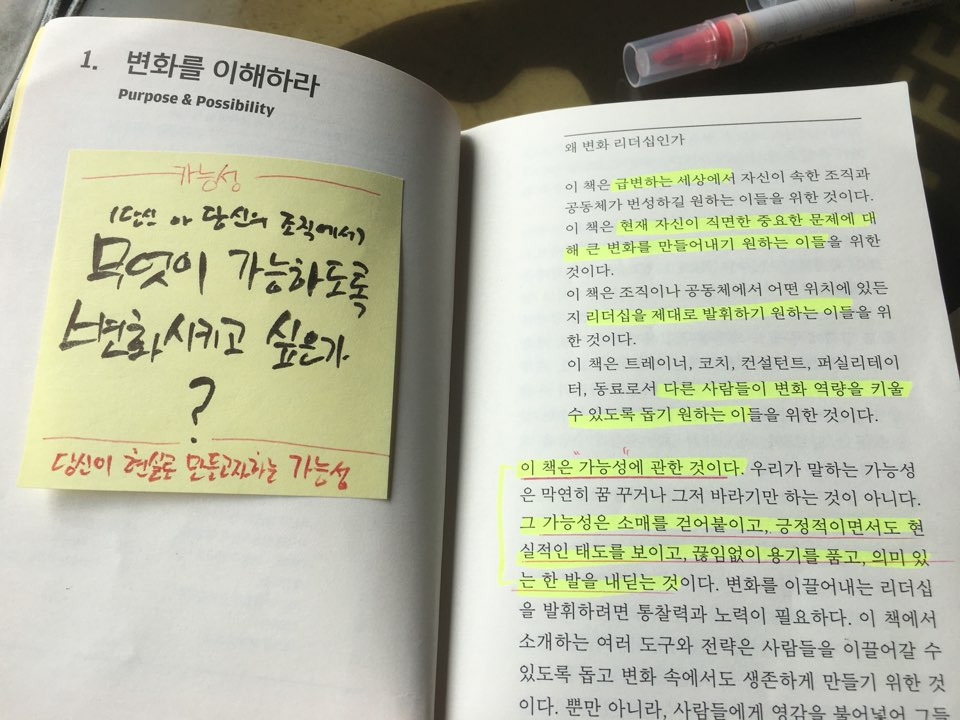 1. 변화를 이해하라
Purpose & Possibility
가능성
(당신 아 당신의 조직에서)
무엇이 가능하도록
변화시키고 싶은가
?
당신이 현실로 만들고자하는 가능성
왜 변화 리더십인가
이 책은 급변하는 세상에서 자신이 속한 조직과
공동체가 번성하길 원하는 이들을 위한 것이다.
이 책은 현재 자신이 직면한 중요한 문제에 대
해 큰 변화를 만들어내기 원하는 이들을 위한
것이다.
이 책은 조직이나 공동체에서 어떤 위치에 있든
지 리더십을 제대로 발휘하기 원하는 이들을 위
한 것이다.
이 책은 트레이너, 코치, 컨설턴트, 퍼실리테이
터, 동료로서 다른 사람들이 변화 역량을 키울
수 있도록 돕기 원하는 이들을 위한 것이다.
이 책은 가능성에 관한 것이다. 우리가 말하는 가능성
은 막연히 꿈 꾸거나 그저 바라기만 하는 것이 아니다.
그 가능성은 소매를 걷어붙이고, 긍정적이면서도 현
실적인 태도를 보이고, 끊임없이 용기를 품고, 의미 있
는 한 발을 내딛는 것이다. 변화를 이끌어내는 리더십
을 발휘하려면 통찰력과 노력이 필요하다. 이 책에서
소개하는 여러 도구와 전략은 사람들을 이끌어갈 수
있도록 돕고 변화 속에서도 생존하게 만들기 위한 것
이다. 뿐만 아니라, 사람들에게 영감을 불어넣어 그들